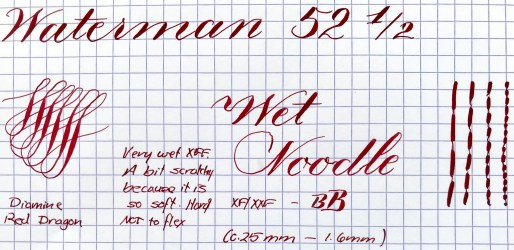 Waterman 52 1/2
Wet
Noodle
Very wet XXF.
A bit scratchy
because it is
so soft. Hard
NOT to flex
XF/XXF - BB
(0.25mm - 1.6mm)
Diamine
Red Dragon